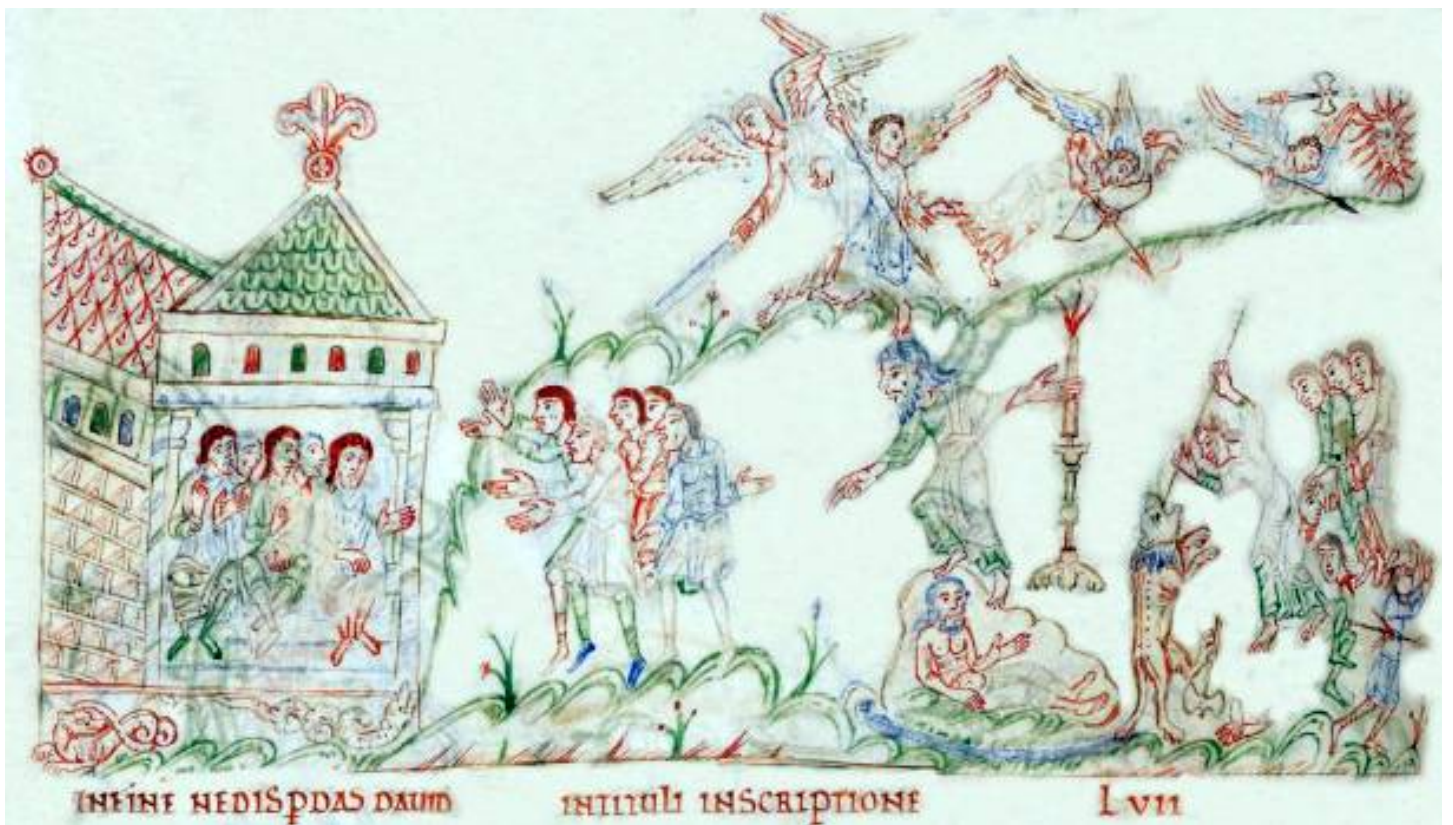 INFINE NEDISꝑDAS DAUID INTITULI INSCRIPTIONE LVII